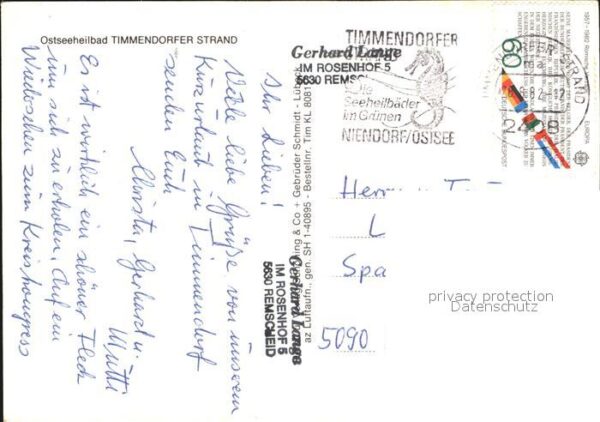 Ostseeheilbad TIMMENDORFER STRAND
Ihr Lieben!
Viele liebe Grüße von unserem
Kurzurlaub in Timmendorf
senden Euch
Christa, Gerhard u.
Mutti
Es ist wirklich ein schöner Fleck
um sich zu erholen. Auf ein
Wiedersehen zum Kreiskongress
Gerhard Lange
IM ROSENHOF 5
5630 REMSCHEID
Gebrüder Schmidt - Lübeck
az Luftaufn., gen. SH 1-40895 · Bestellnr. Tim KL 8081
TIMMENDORFER
Die
Seeheilbäder
im Grünen
NIENDORF/OSTSEE
Gerhard Lange
IM ROSENHOF 5
5630 REMSCHEID
60
1957-1982
EUROPA
STRAND
2408
Herrn
L
Spa
5090
privacy protection
Datenschutz